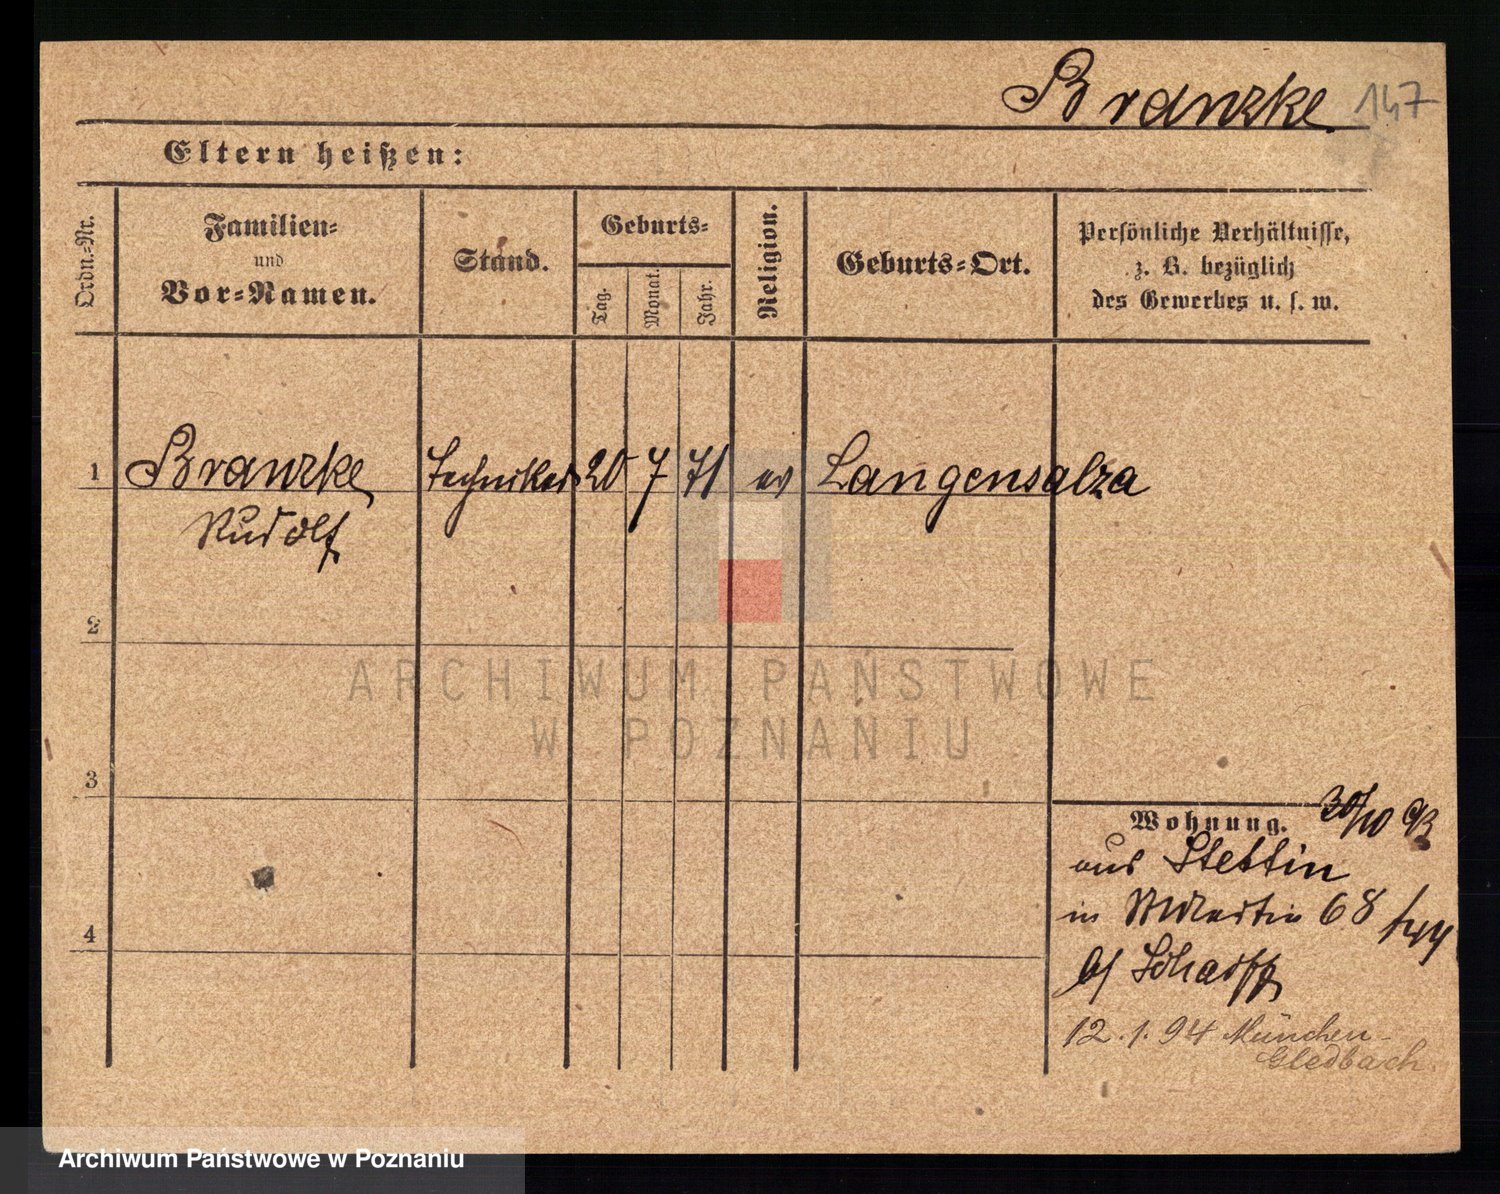 Branzke 147
Eltern heißen:
Ordn.-Nr.
Familien-
und
Vor-Namen.
Stand.
Geburts-
Tag.
Monat.
Jahr.
Religion.
Geburts-Ort.
Persönliche Verhältnisse,
z. B. bezüglich
des Gewerbes u. s. w.
1 Branzke Techniker 20 7 71 ev Langensalza
Rudolf
2
ARCHIWUM PAŃSTWOWE
W POZNANIU
3
Wohnung. 30/10 93
aus Stettin
in St Martin 68
b/ Scharff
4
12.1.94 München-
Gledbach.
Archiwum Państwowe w Poznaniu